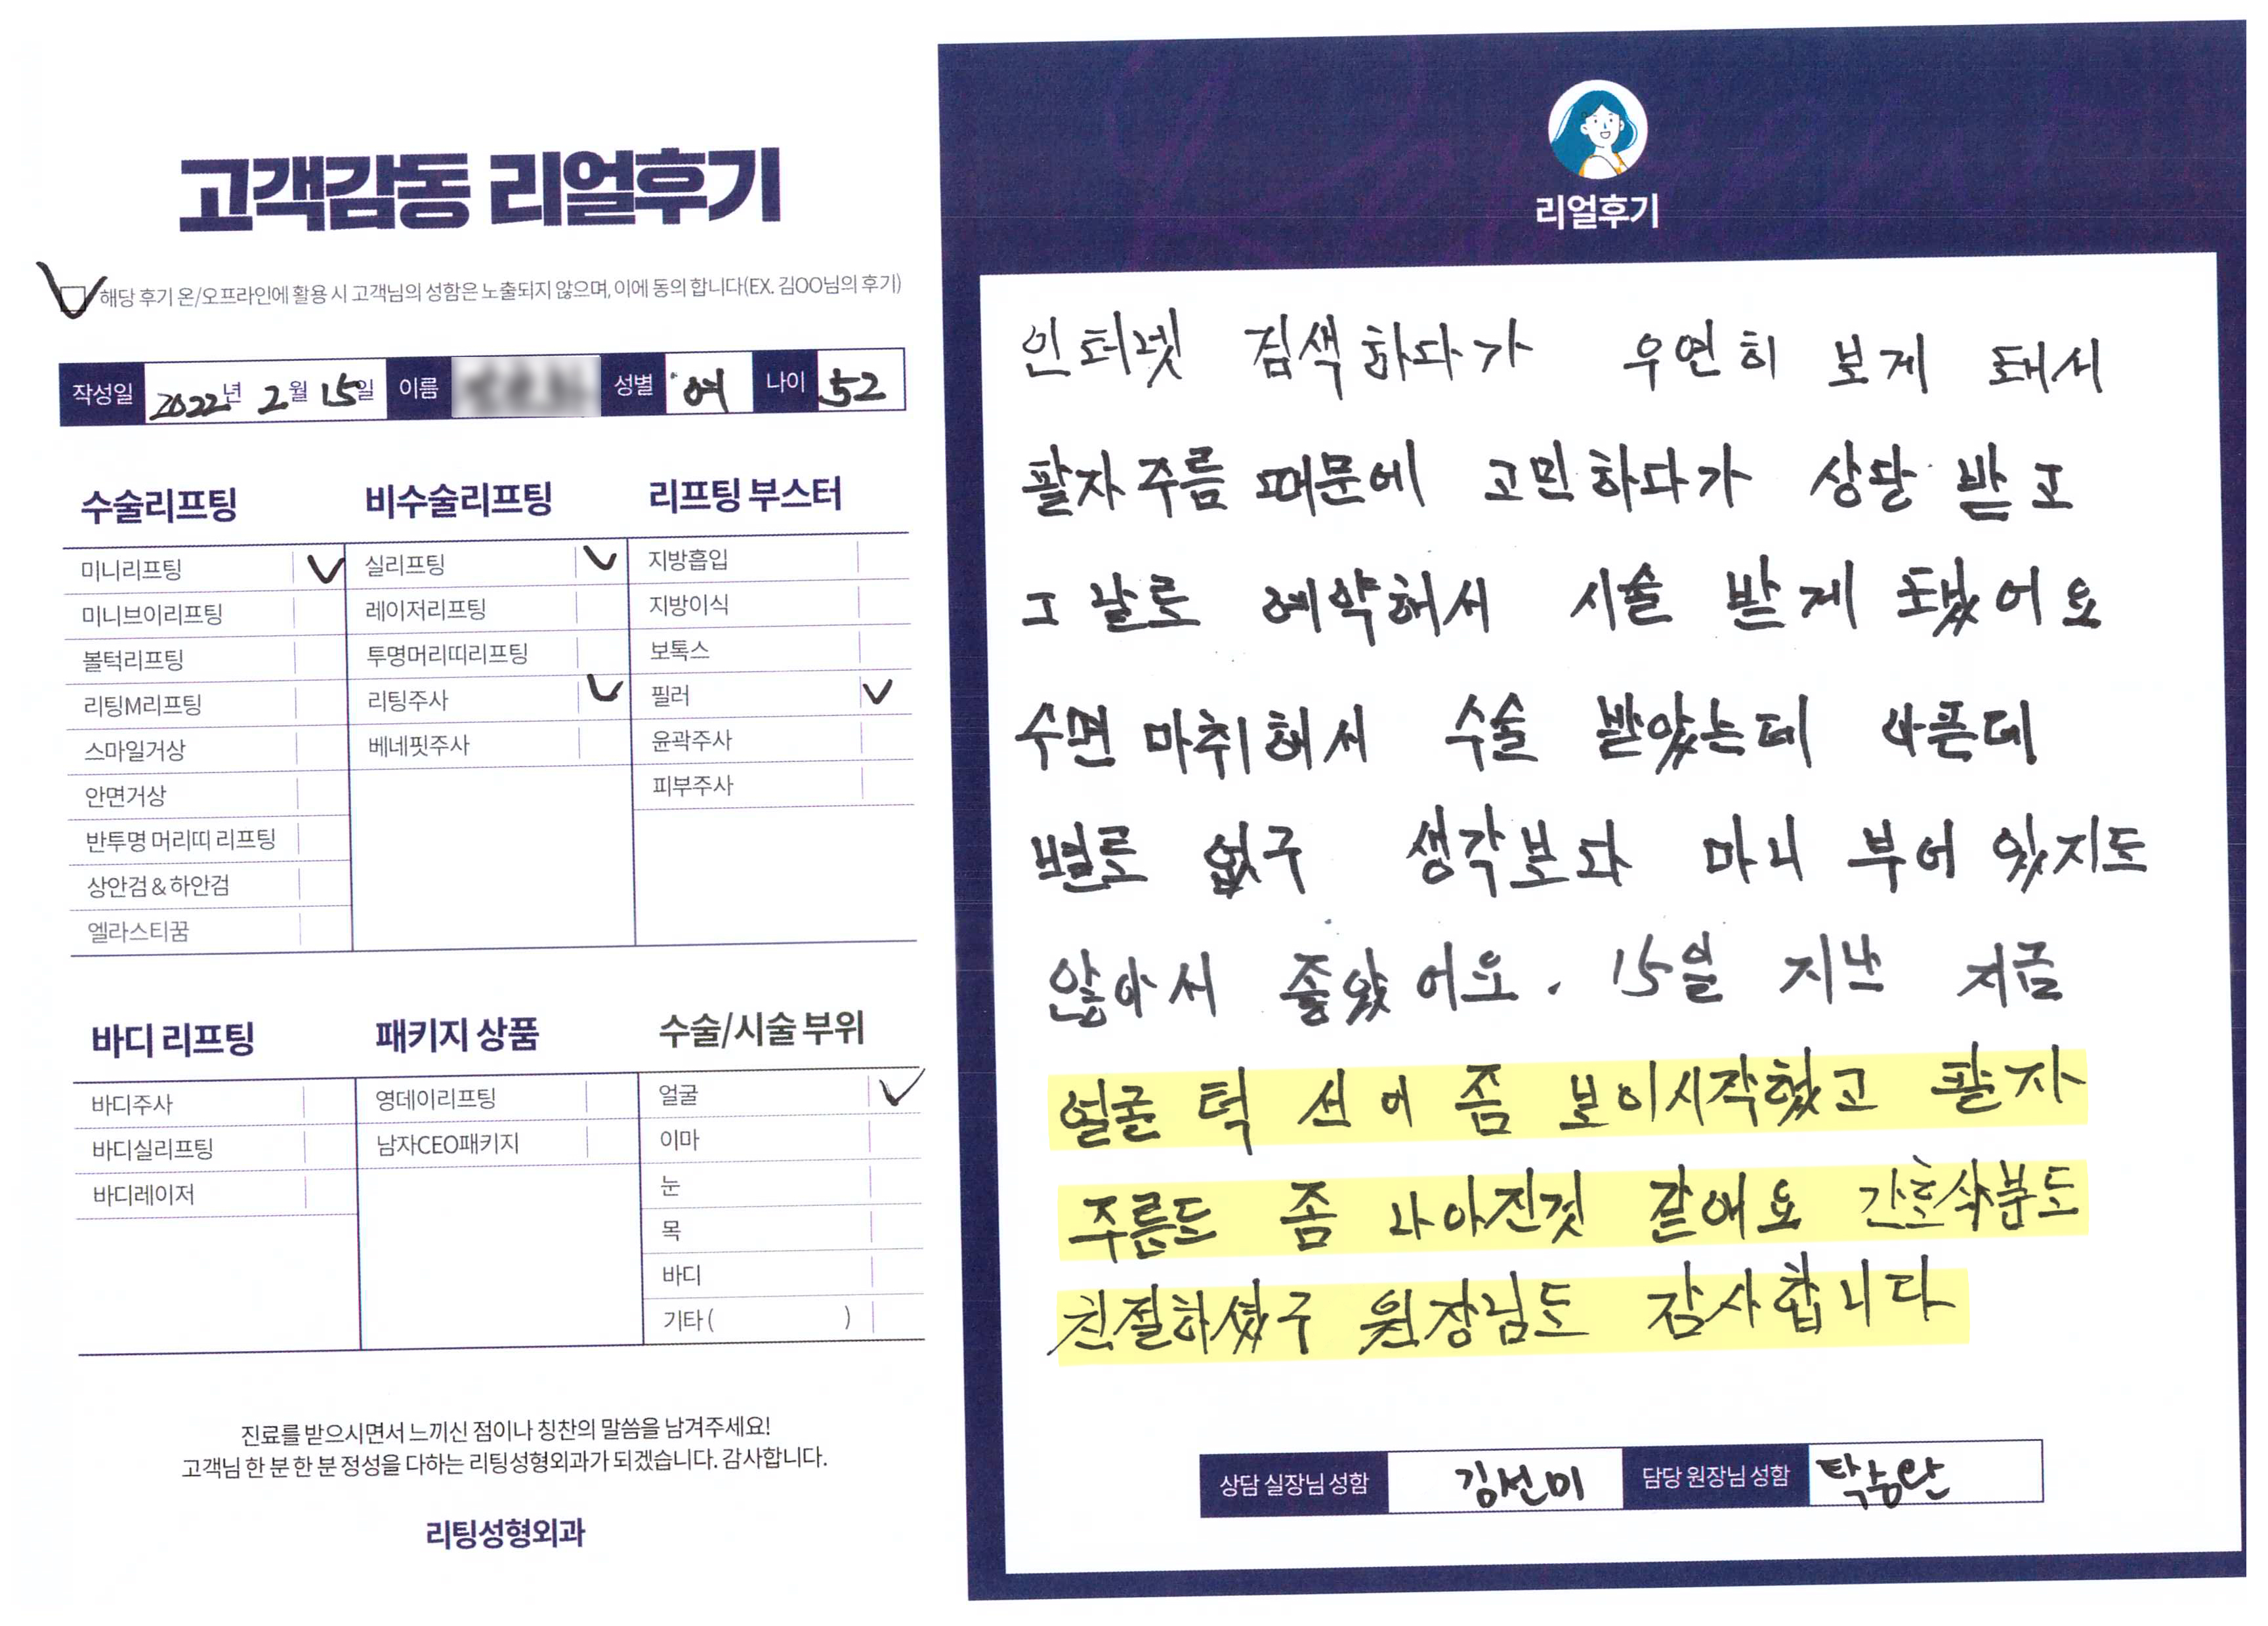 고객감동 리얼후기
해당 후기 온/오프라인에 활용 시 고객님의 성함은 노출되지 않으며, 이에 동의 합니다(EX. 김OO님의 후기)
작성일 2022년 2월 15일 이름 성별 여 나이 52
수술리프팅 비수술리프팅 리프팅 부스터
미니리프팅 실리프팅 지방흡입
미니브이리프팅 레이저리프팅 지방이식
볼턱리프팅 투명머리띠리프팅 보톡스
리팅M리프팅 리팅주사 필러
스마일거상 베네핏주사 윤곽주사
안면거상 피부주사
반투명 머리띠 리프팅
상안검&하안검
엘라스티꿈
바디 리프팅 패키지 상품 수술/시술 부위
바디주사 영데이리프팅 얼굴
바디실리프팅 남자CEO패키지 이마
바디레이저 눈
목
바디
기타 ( )
진료를 받으시면서 느끼신 점이나 칭찬의 말씀을 남겨주세요!
고객님 한 분 한 분 정성을 다하는 리팅성형외과가 되겠습니다. 감사합니다.
리팅성형외과
리얼후기
인터넷 검색하다가 우연히 보게 돼서
팔자주름 때문에 고민하다가 상담 받고
그 날로 예약해서 시술 받게 됐어요
수면 마취해서 수술 받았는데 아픈데
별로 없구 생각보다 마니 부어 있지도
않아서 좋았어요. 15일 지난 지금
얼굴 턱 선이 좀 보이시작했고 팔자
주름도 좀 나아진것 같애요 간호사분도
친절하셨구 원장님도 감사합니다
상담 실장님 성함 김선미 담당 원장님 성함